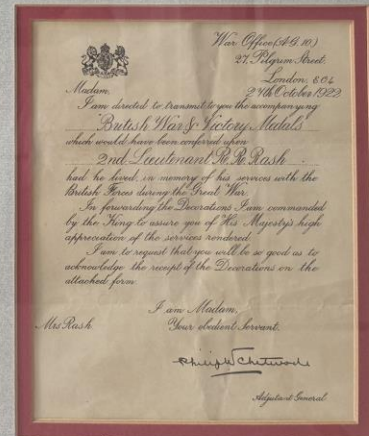 War Office (A.G. 10.)
27, Pilgrim Street.
London. E.C.4.
Madam, 24th October 1922
I am directed to transmit to you the accompanying
British War & Victory Medals
which would have been conferred upon
2nd Lieutenant R. R. Rash
had he lived, in memory of his services with the
British Forces during the Great War.
In forwarding the Decorations I am commanded
by the King to assure you of His Majesty's high
appreciation of the services rendered.
I am to request that you will be so good as to
acknowledge the receipt of the Decorations on the
attached form.
I am Madam,
Mrs Rash Your obedient Servant.
Philip W Chetwode
Adjutant General